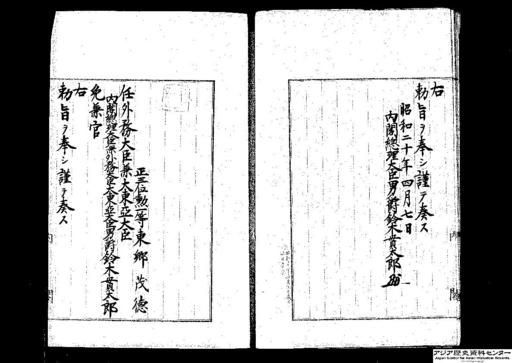 右
勅旨ヲ奉シ謹テ奏ス
昭和二十年四月七日
内閣総理大臣男爵鈴木貫太郎
正三位勲一等東郷茂徳
任外務大臣兼大東亜大臣
内閣総理大臣兼外務大臣大東亜大臣男爵鈴木貫太郎
免兼官
右
勅旨ヲ奉シ謹テ奏ス
内閣
アジア歴史資料センター
Japan Center for Asian Historical Records